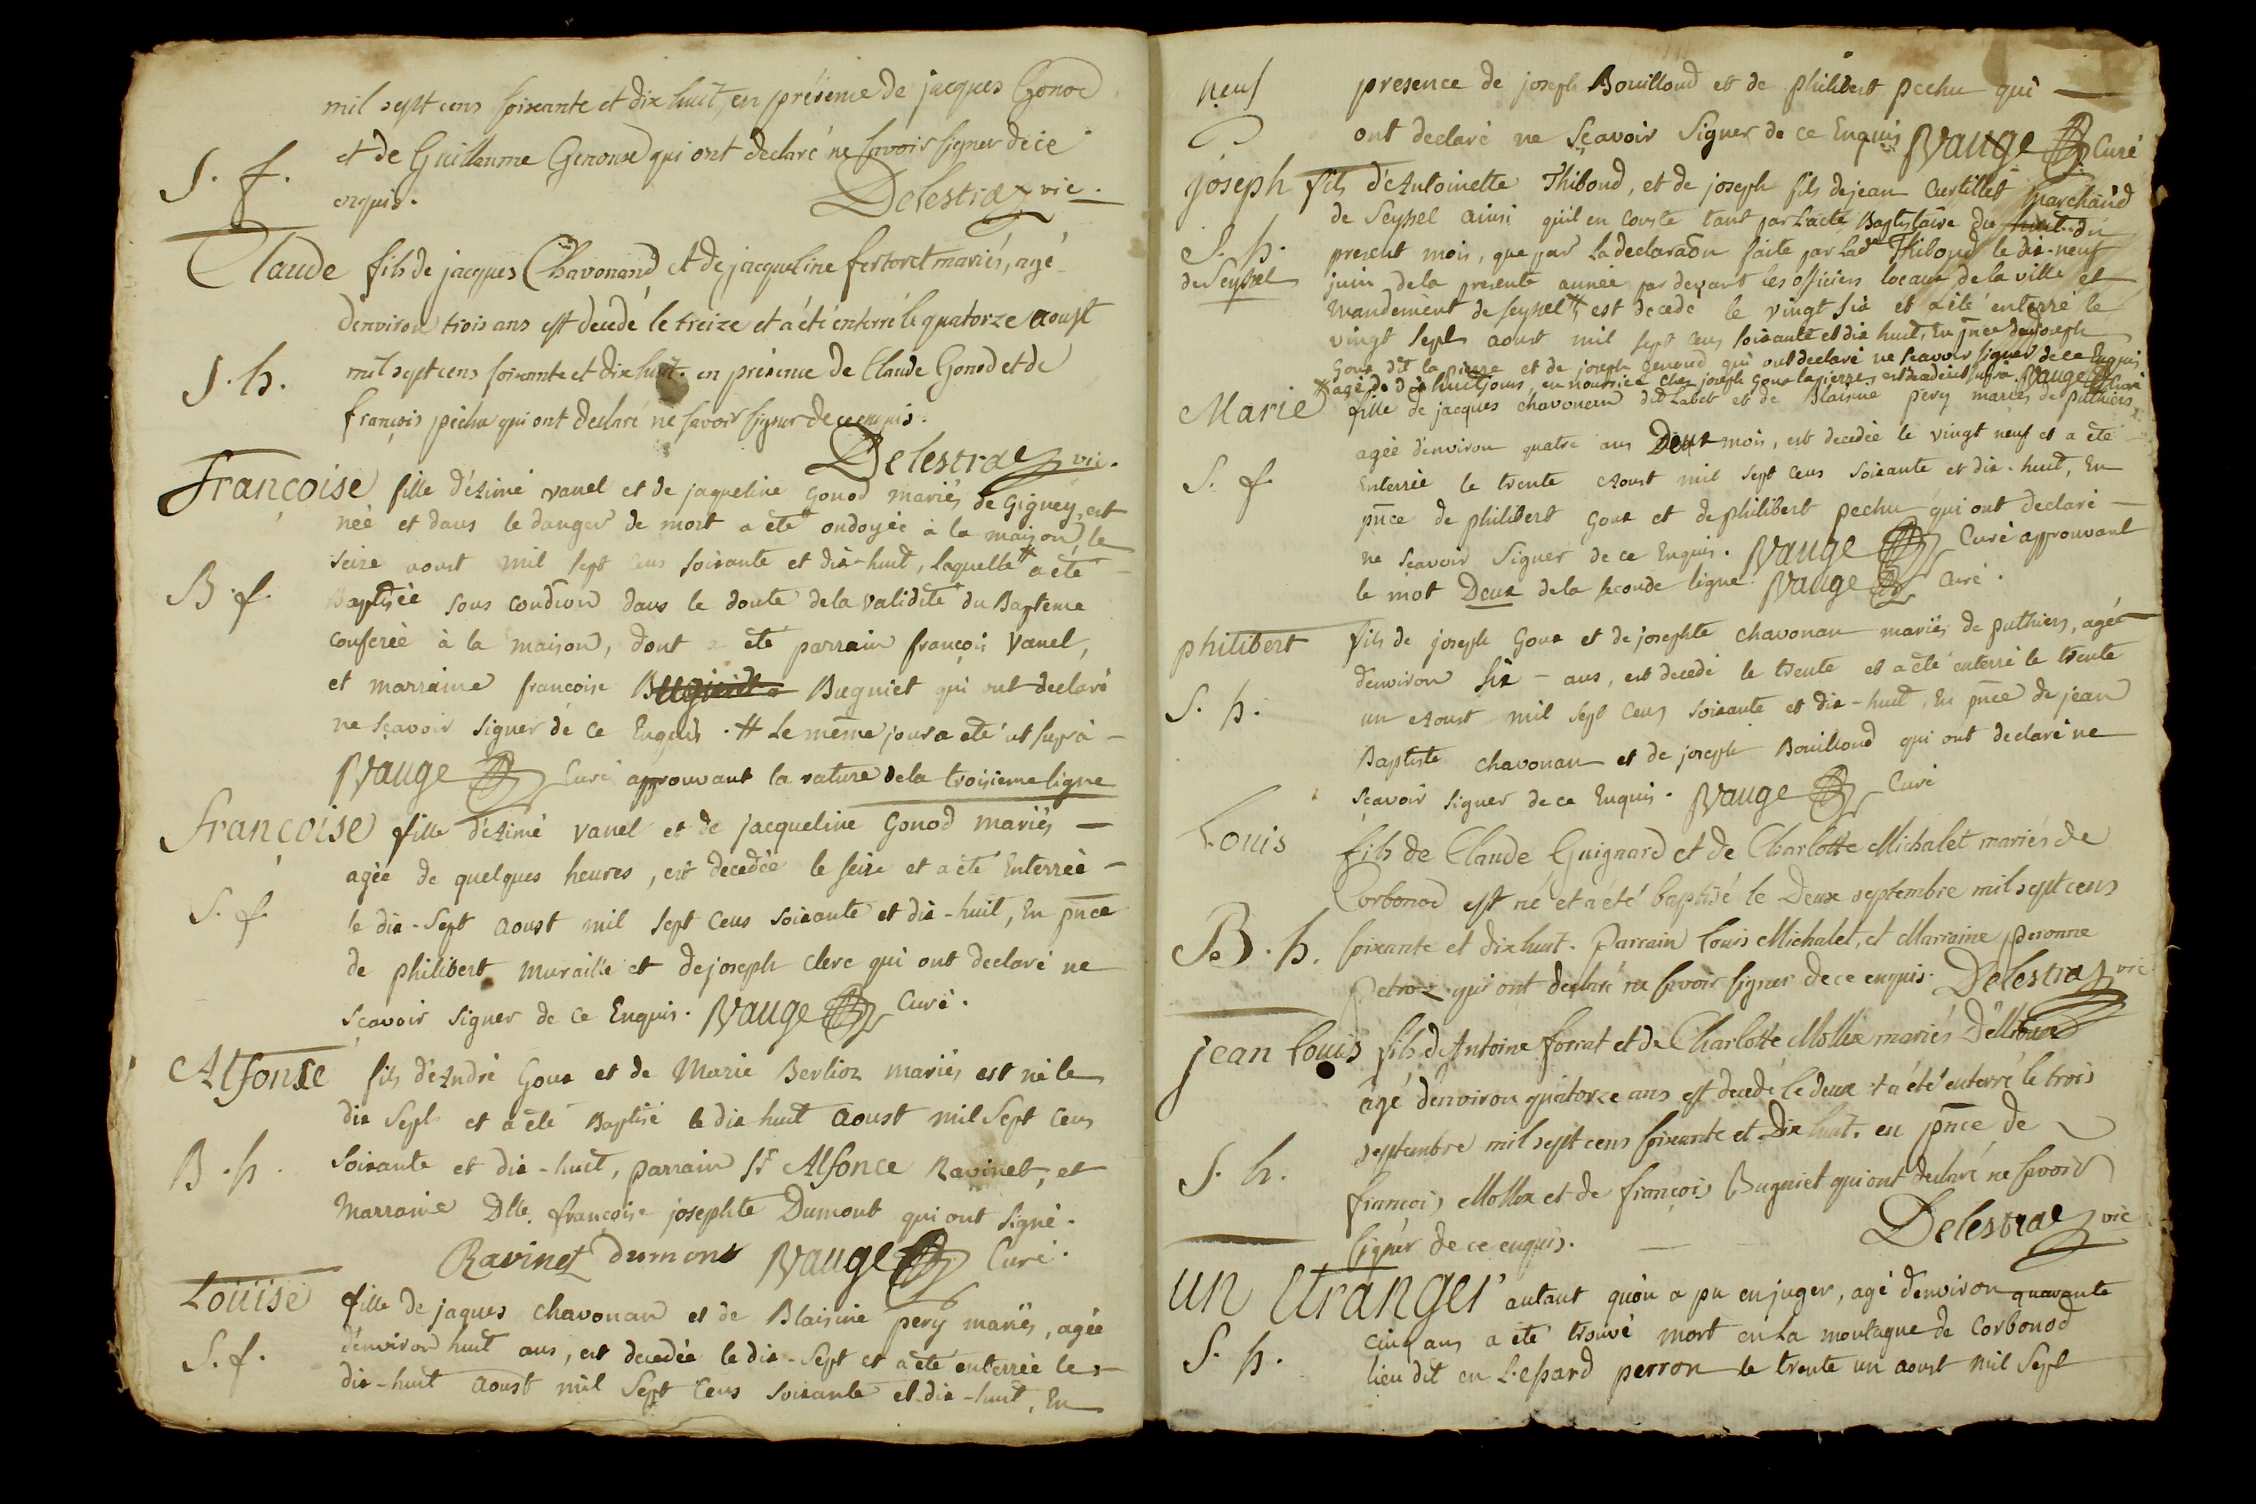 mil sept cens soixante et dix huit, en présence de jacques Gonod
S. f.
et de Guillaume Genoux qui ont declaré ne savoir signer de ce
enquis. Delestraz vic.
Claude fils de jacques Chavonand et de jacqueline fertoret mariés, agé
d'environ trois ans est decedé le treize et a été enterré le quatorze aoust
S. h.
mil sept cens soixante et dix huit. en présence de Claude Gonod et de
françois pichu qui ont declaré ne savoir signer de ce enquis.
Delestraz vic.
françoise fille d'Aimé vanel et de jaqueline Gonod mariés de Gigney, est
née et dans le danger de mort a été ondoyée à la maison le
seize aoust mil sept cens soixante et dix-huit, laquelle # a été
B. f.
Baptisée sous condion dans le doute de la validité du Bapteme
conferée à la maison, dont a été parrain françois Vanel,
et marraine françoise Bugniet qui ont declaré
ne sçavoir signer de ce Enquis. # Le même jour a été ut suprà
Vauge Curé approuvant la rature de la troisieme ligne
françoise fille d'Aimé vanel et de jacqueline Gonod mariés
agée de quelques heures, est decedée le seize et a été Enterrée
S. f.
le dix-Sept aoust mil sept cens soixante et dix-huit, En pnce
de philibert muraille et de joseph clerc qui ont declaré ne
sçavoir signer de ce Enquis. Vauge Curé.
Alfonse fils d'André Goux et de Marie Berlioz mariés est né le
dix Sept et a été Baptisé le dix huit aoust mil Sept cens
B. h.
soixante et dix-huit, parrain Sr Alfonce Ravinet, et
Marraine Dlle. françoise josephte Dumont qui ont signé.
Ravinet dumont Vauge Curé.
Loüise fille de jaques chavonan et de Blaisine pery mariés, agée
S. f.
d'environ huit ans, est decedée le dix-Sept et a été enterrée le
dix-huit aoust mil Sept Cens soixante et dix-huit, En
neuf
presence de joseph Bouilloud et de philibert pechu qui
ont declaré ne Sçavoir Signer de ce Enquis Vauge Curé
joseph fils d'Antoinette Thiboud, et de joseph fils de jean Curtillet Marchand
de Seyssel ainsi qu'il en conste tant par L'acte Baptistaire du huit du
S. h.
de Seyssel
present mois, que par La declaraon faite par Lade Thiboud le dix-neuf
juin de la presente année par devant les officiers locaux de la ville et
Mandement de seyssel # est decedé le vingt six et a été enterré le
vingt sept aoust mil sept cens soixante et dix huit, En pnce de joseph
Goux dit la pierre et de joseph Genoud qui ont declaré ne sçavoir signer de ce Enquis
# agé de dix huit jours, en nourrice chez joseph Goux lapierre, est decedé ut supra. Vauge Curé
Marie fille de jacques chavonan dit Labet et de Blaisine pery mariés de puthiers
agée d'environ quatre ans Deux mois, est decedée le vingt neuf et a été
S. f.
Enterrée le trente Aoust mil sept cens soixante et dix-huit, En
pnce de philibert Goux et de philibert pechu qui ont declaré
ne sçavoir Signer de ce Enquis. Vauge Curé approuvant
le mot Deux de la seconde ligne Vauge Curé.
philibert fils de joseph Goux et de josephte chavonan mariés de puthiers, agée
d'environ six - ans, est decedé le trente et a été enterré le trente
S. h.
un Aoust mil sept cens soixante et dix-huit, En pnce de jean
Baptiste chavonan et de joseph Bouilloud qui ont declaré ne
sçavoir signer de ce Enquis. Vauge Curé
Louis fils de Claude Guignard et de Charlotte Michalet mariés de
Corbonod est né et a été baptisé le Deux septembre mil sept cens
B. h.
soixante et dix huit. Parrain Louis Michalet, et Marraine peronne
Petroz qui ont declaré ne savoir signer de ce enquis. Delestraz vic
jean Louis fils de Antoine forrat et de Charlotte Mollex mariés
agé d'environ quatorze ans est decedé le deux et a été enterré le trois
septembre mil sept cens soixante et Dix huit. en pnce de
S. h.
françois Mollex et de françois Bugniet qui ont declaré ne savoir
signer de ce enquis. Delestraz vic
un Etranger autant qu'on a pu en juger, agé d'environ quarante
S. h.
cinq ans a été trouvé mort en La montagne de Corbonod
lieu dit en L'epard perron le trente un aoust mil Sept